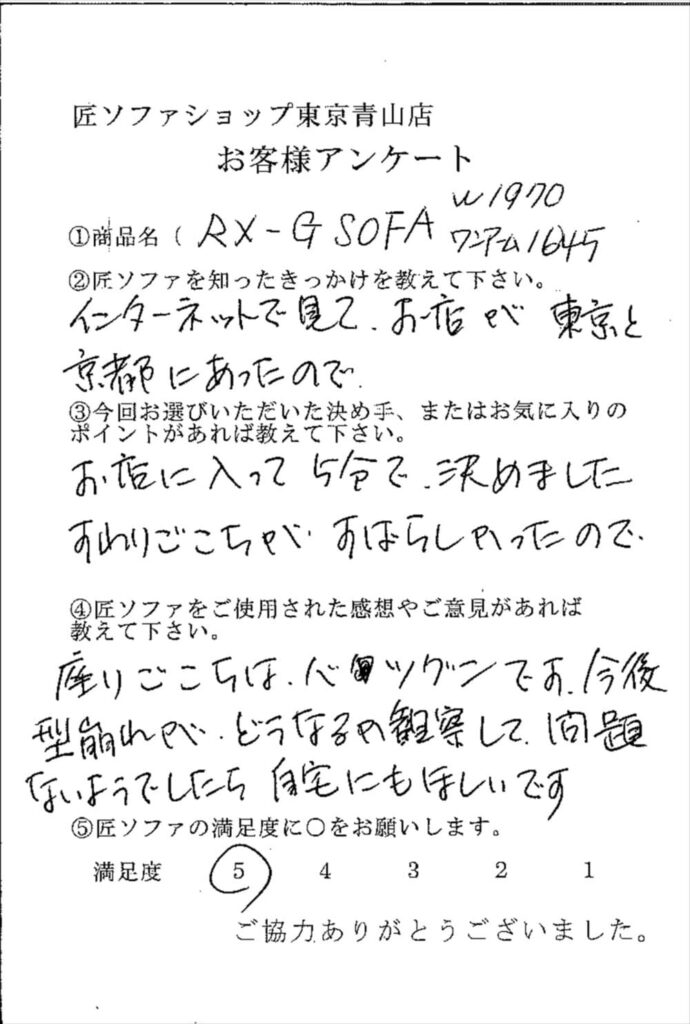 匠ソファショップ東京青山店
お客様アンケート
①商品名（ RX-G SOFA W1970
ワンアーム1645
②匠ソファを知ったきっかけを教えて下さい。
インターネットで見て、お店が 東京と
京都にあったので、
③今回お選びいただいた決め手、またはお気に入りの
ポイントがあれば教えて下さい。
お店に入って 5分で、決めました
すわりごこちが すばらしかったので、
④匠ソファをご使用された感想やご意見があれば
教えて下さい。
座りごこちは、バツグンです。今後
型崩れが、どうなるか観察して、問題
ないようでしたら 自宅にもほしいです
⑤匠ソファの満足度に〇をお願いします。
満足度 5 4 3 2 1
ご協力ありがとうございました。